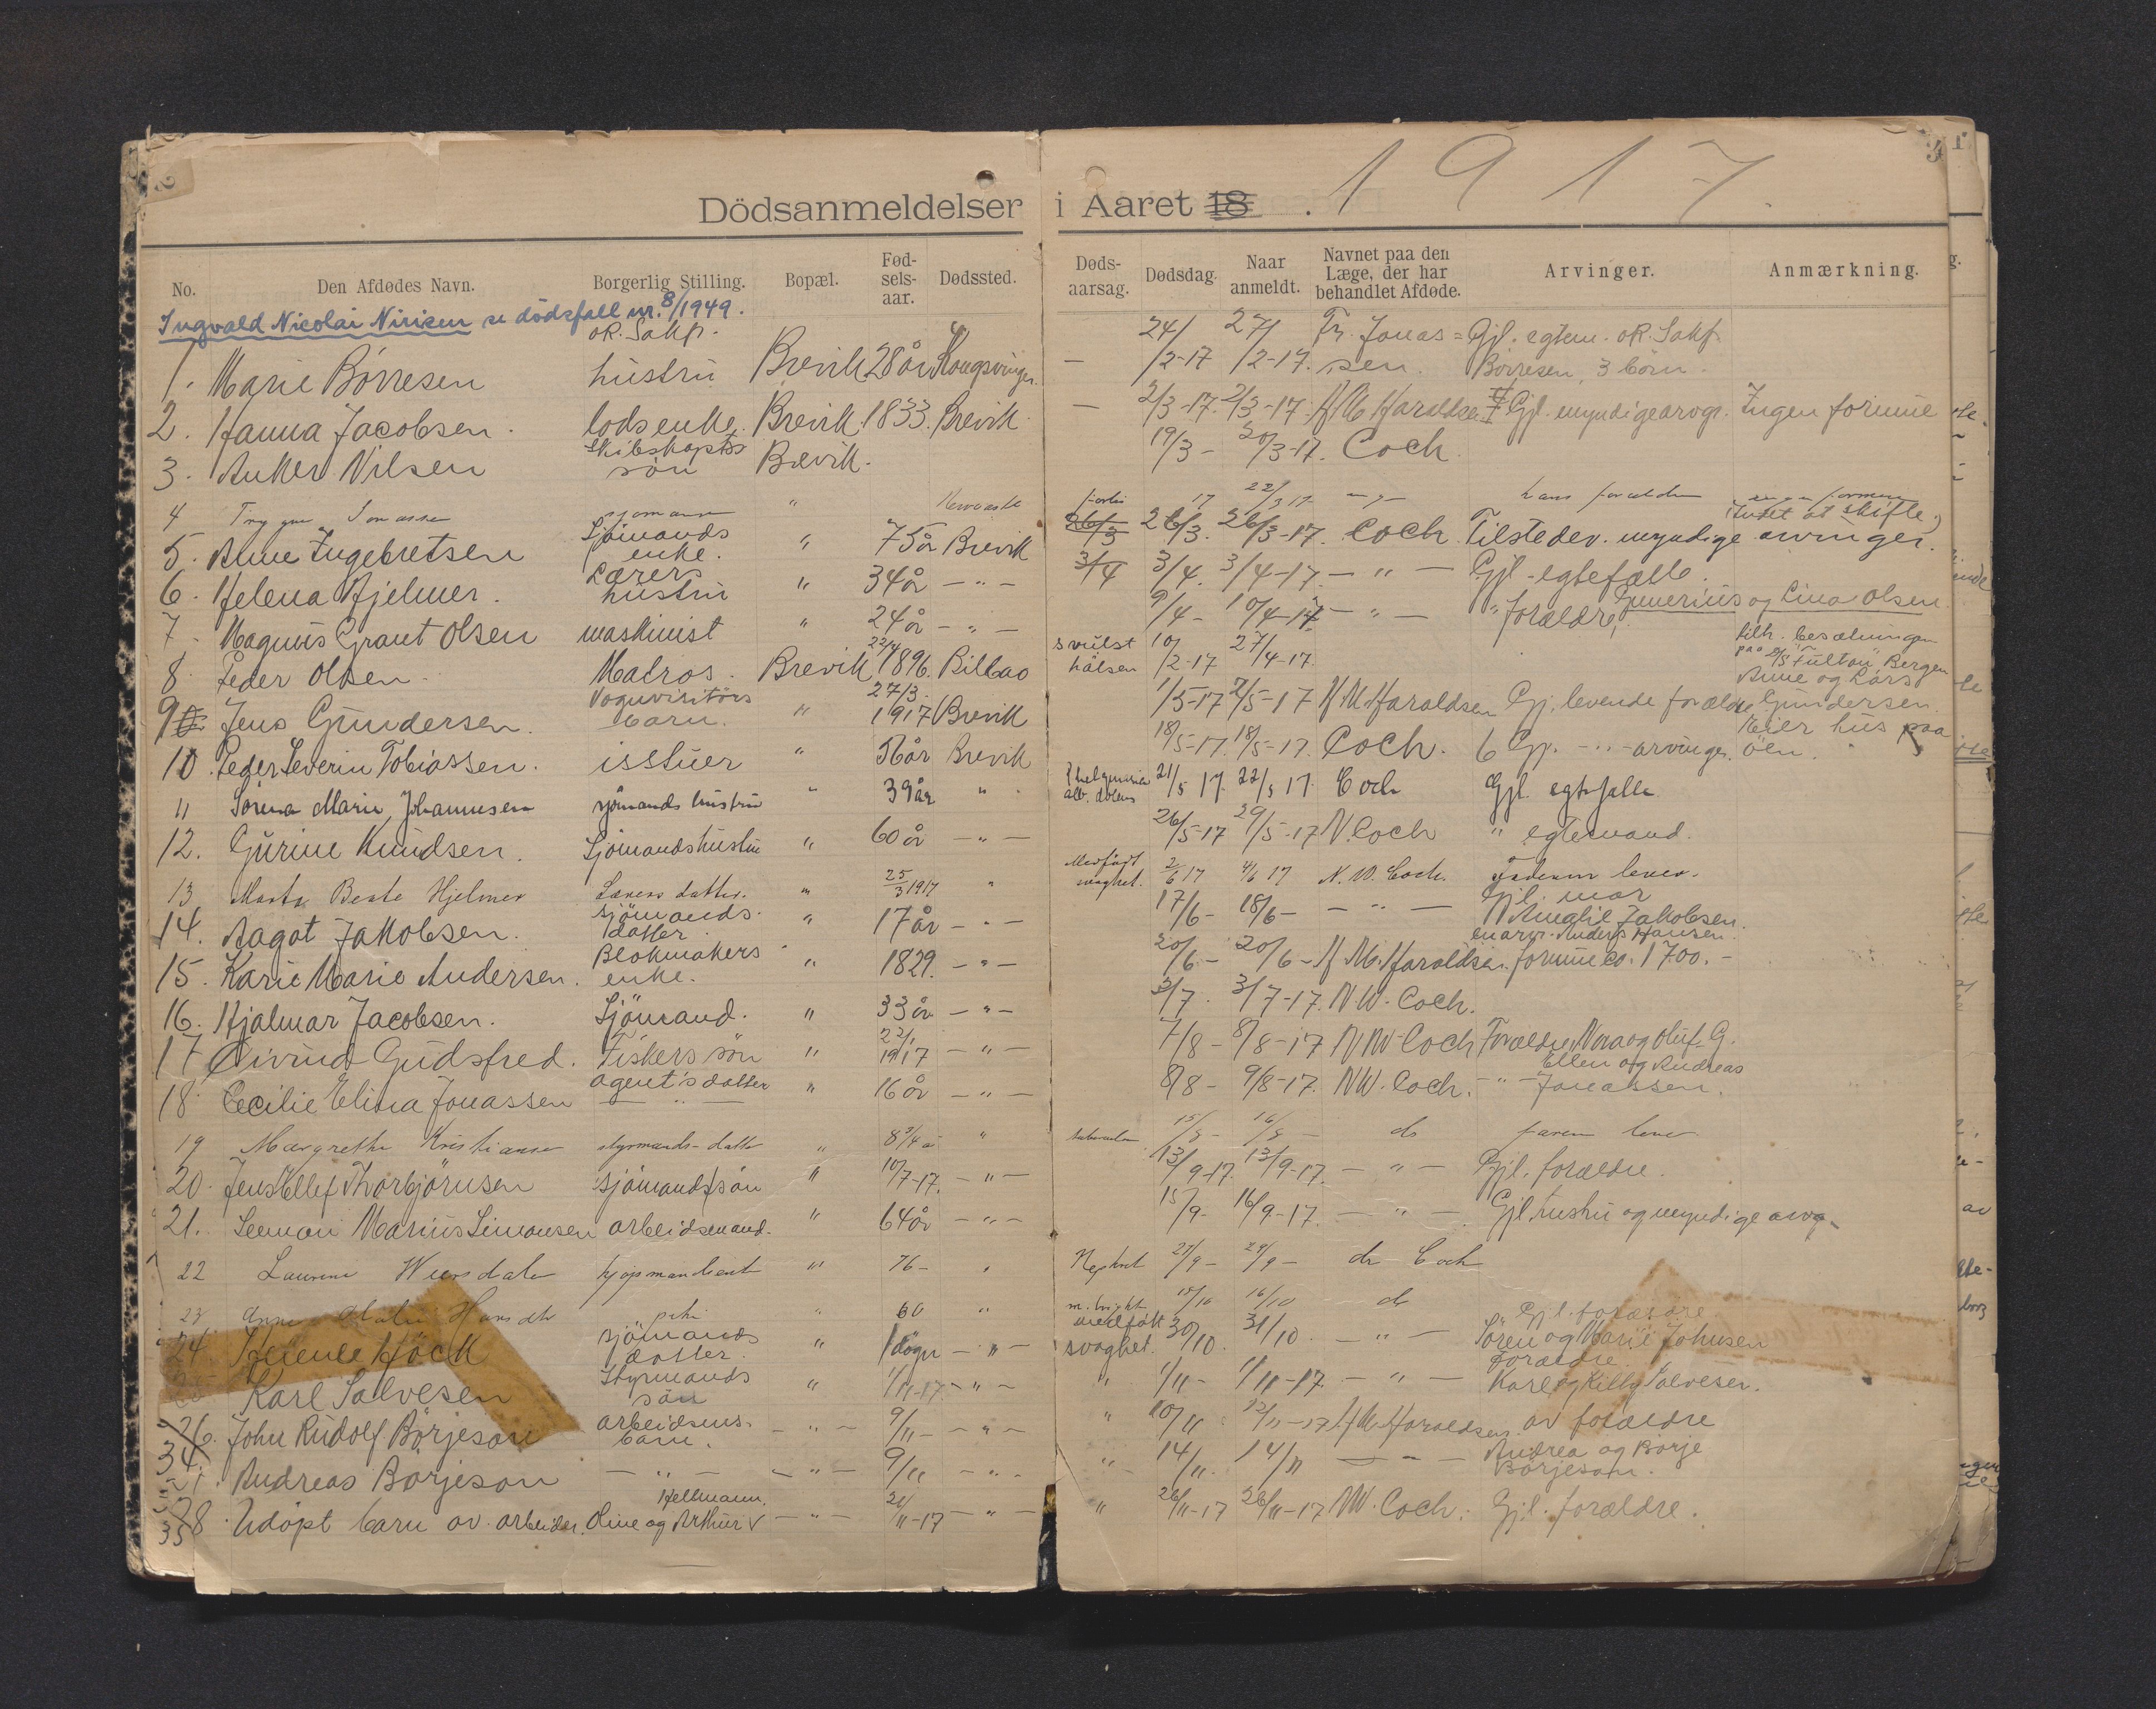 Dödsanmeldelser i Aaret 18 . 1917.
No. Den Afdødes Navn. Borgerlig Stilling. Bopæl. Fødselsaar. Dødssted. Dødsaarsag. Dødsdag. Naar anmeldt. Navnet paa den Læge, der har behandlet Afdøde. Arvinger. Anmærkning.
Ingvald Nicolai Nirisen se dödsfall nr. 8/1949.
1. Marie Börresen oR. Sakf. hustru Brevik 28 år Kongsvinger. — 24/2-17 27/2-17. Fr. Jonas=sen. Gjl. egtem. oR. Sakf. Börresen, 3 börn.
2. Hanna Jacobsen. lods enke. Brevik 1833. Brevik — 2/3-17. 2/3-17 H M Haraldsen Gjl. myndige arvgr. Ingen formue
3. Anker Nilsen Skibskapts sön Brevik. 19/3 - 20/3-17. Coch.
4 sjömann " 17 22/3 17 hans forældre
5. Anne Ingebretsen Sjömands enke. " 75 år Brevik 26/3 26/3. 26/3-17. Coch Tilstedev. myndige arvinger. (Intet at skifte.)
6. Helena Hjelmer. Lærers hustru " 34 år — " — 3/4 3/4. 3/4-17 — " — Gjl. egtefælle.
7. Magnus Grant Olsen maskinist " 24 år — " — 9/4 - 10/4-17 — " — " forældre, Gunerius og Lina Olsen.
8. Peder Olsen. Matros. Brevik 22/4 1896. Bilbao svulst halsen 10/2-17 27/4-17. tilh. besætningen paa S/S "Fulton" Bergen
9 Jens Gundersen. barn. " 27/3. 1917 Brevik 1/5-17 2/5-17 H M Haraldsen Gj. levende forældre Anne og Lars Gundersen.
10. Peder Severin Tobiassen. isstuer " 56 år Brevik 18/5-17. 18/5-17. Coch. 6 Gj. - " - arvinger. Eier hus paa öen.
11 Sörine Marie Johannesen sjömands hustru " 39 år " 21/5 17. 22/5 17. Coch Gjl. egtefælle
12. Gurine Knudsen. Sjömandshustru " 60 år — " — 26/5-17 29/5-17 N. Coch " egtemand.
13 Marta Beate Hjelmer Lærers datter. " 25/3 1917 " Medfödt svaghet. 2/6 17 4/6 17 N. W. Coch. Faderen lever.
14. Aagot Jakobsen. sjömands. datter " 17 år — " — 17/6 - 18/6 - — " — Gjl. mor Amalie Jakobsen.
15. Karie Marie Andersen. Blokmakers enke. " 1829. — " — 20/6 - 20/6 - H M. Haraldsen. en arv. Anders Hansen. formue ca. 1700.-
16. Hjalmar Jacobsen. Sjömand. " 33 år — " — 3/7. 3/7-17. N.W. Coch.
17 Eivind Gudsfred. Fiskers sön " 22/1 1917 — " — 7/8 - 8/8-17 N W Coch Forældre, Nora og Oluf G.
18. Cecilie Elina Jonassen agent's datter " 16 år — " — 8/8 - 9/8-17. NW. Coch. — " — Ellen og Andreas Jonassen.
19 Margrethe Kristiansen styrmands-datter " 8 3/4 år " tuberculose 15/8 - 16/8 - do faren lever
20. Jens Ellef Thorbjörnsen sjömandssön " 10/7-17. — " — 13/9-17. 13/9-17. — " — Gjl. forældre.
21. Seemon Marius Simonsen arbeidsmand. " 64 år — " — 15/9 - 16/9-17. — " — Gjl. hustru og myndige arvg.
22 Laurine kjöpmandsenke " 76 - " 27/9 - 29/9 - dr Coch
23 Anne Hansdtr pike " 60 " 15/10 16/10 dr
24 Helene Höck sjömands datter. " 1 dögn — " — medfödt svaghet. 30/10. 31/10. — " — Gjl. forældre Sören og Marie Johnsen
Karl Salvesen Styrmands sön " 1/11-17. — " — " 1/11 - 1/11-17. — " — Forældre Karl og Kitty Salvesen.
26. John Rudolf Börjeson arbeidsms. barn. — " — 9/11 - — " — " 10/11 12/11-17 H M. Haraldsen av forældre
34 27. Andreas Börjeson — " — — " — 9/11 — " — " 14/11. 14/11 — " — Andrea og Börje Börjeson.
35 28. Udöpt barn av arbeider. Oline og Arthur Hellmann. — " — 26/11-17 — " — " 26/11-17 26/11-17 NW. Coch. Gjl. forældre.